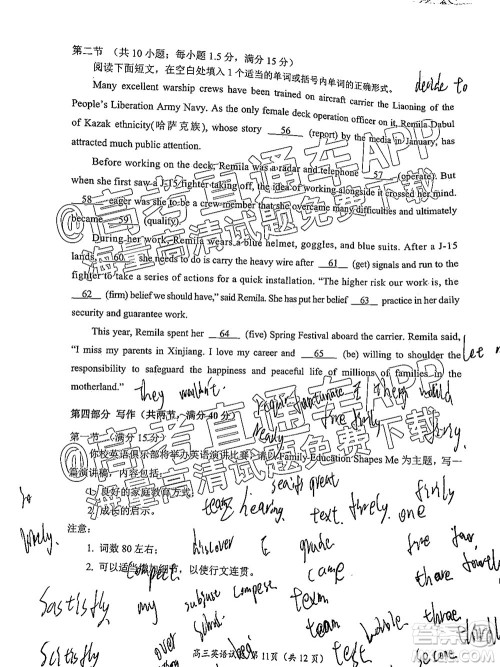 第二节 （共 10 小题；每小题 1.5 分，满分 15 分）
阅读下面短文，在空白处填入 1 个适当的单词或括号内单词的正确形式。
decide to
Many excellent warship crews have been trained on aircraft carrier the Liaoning of the
People's Liberation Army Navy. As the only female deck operation officer on it, Remila Dabul
of Kazak ethnicity(哈萨克族), whose story 56 (report) by the media in January, has
attracted much public attention.
Before working on the deck, Remila was a radar and telephone 57 (operate). But
when she first saw a J-15 fighter taking off, the idea of working alongside it crossed her mind.
58 eager was she to be a crew member that she overcame many difficulties and ultimately
became 59 (quality).
During her work, Remila wears a blue helmet, goggles, and blue shirts. After a J-15
lands, 60 she needs to do is carry the heavy wire after 61 (get) signals and run to the
fighter to take a series of actions for a quick installation. "The higher risk our work is, the
62 (firm) belief we should have," said Remila. She has put her belief 63 practice in her daily
security and guarantee work.
This year, Remila spent her 64 (five) Spring Festival aboard the carrier. Remila said,
"I miss my parents in Xinjiang. I love my career and 65 (be) willing to shoulder the
responsibility to safeguard the happiness and peaceful life of millions of families in the
motherland."
they wouldn't
第四部分 写作（共两节，满分 40 分）
第一节（满分 15 分）
ready
你校英语俱乐部将举办英语演讲比赛，请以 Family Education Shapes Me 为主题，写一
篇演讲稿，内容包括：
1. 良好的家庭教育方式；
2. 成长的启示。
hearing
text
firely
one
注意：
1. 词数 80 左右；
discover
grade
2. 可以适当增加细节，以使行文连贯。
came
my
team
three
over
test
高三英语试卷 第 11 页（共 12 页）
@高考直通车APP
海量高清试题免费下载
@高考直通车APP
海量高清试题免费下载